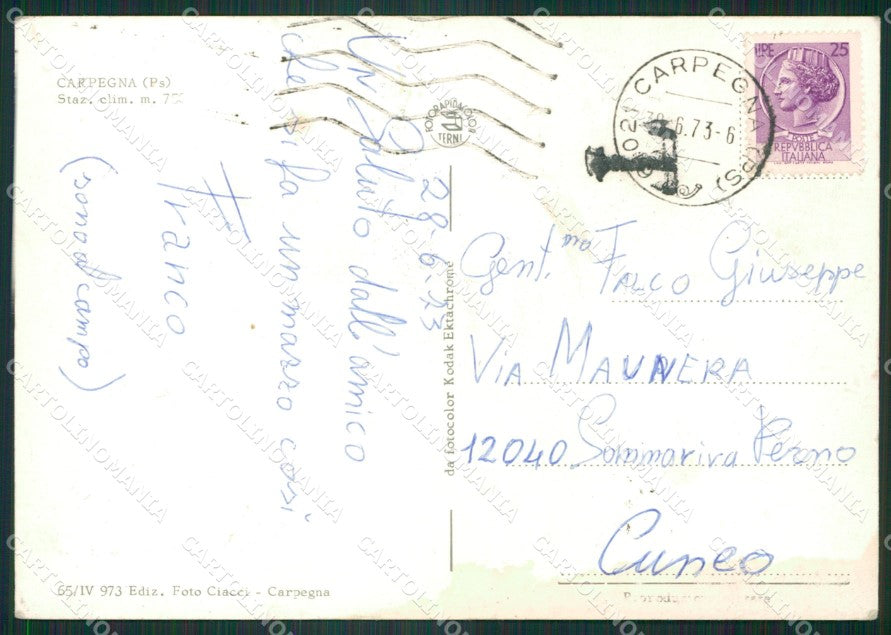 CARPEGNA (Ps)
Staz. clim. m.
28-6-73
Un Saluto dall'amico
che si fa un mazzo così
Franco
(sono al campo)
FOTORAPIDACOLOR
TERNI
CARPEGNA (PS)
-6.73-6
T
LIRE 25
POSTE
REPVBBLICA
ITALIANA
Gent.mo FALCO Giuseppe
VIA MAUNERA
12040 Sommariva Perno
Cuneo
da fotocolor Kodak Ektachrome
65/IV 973 Ediz. Foto Ciacci - Carpegna
CARTOLINOMANIA